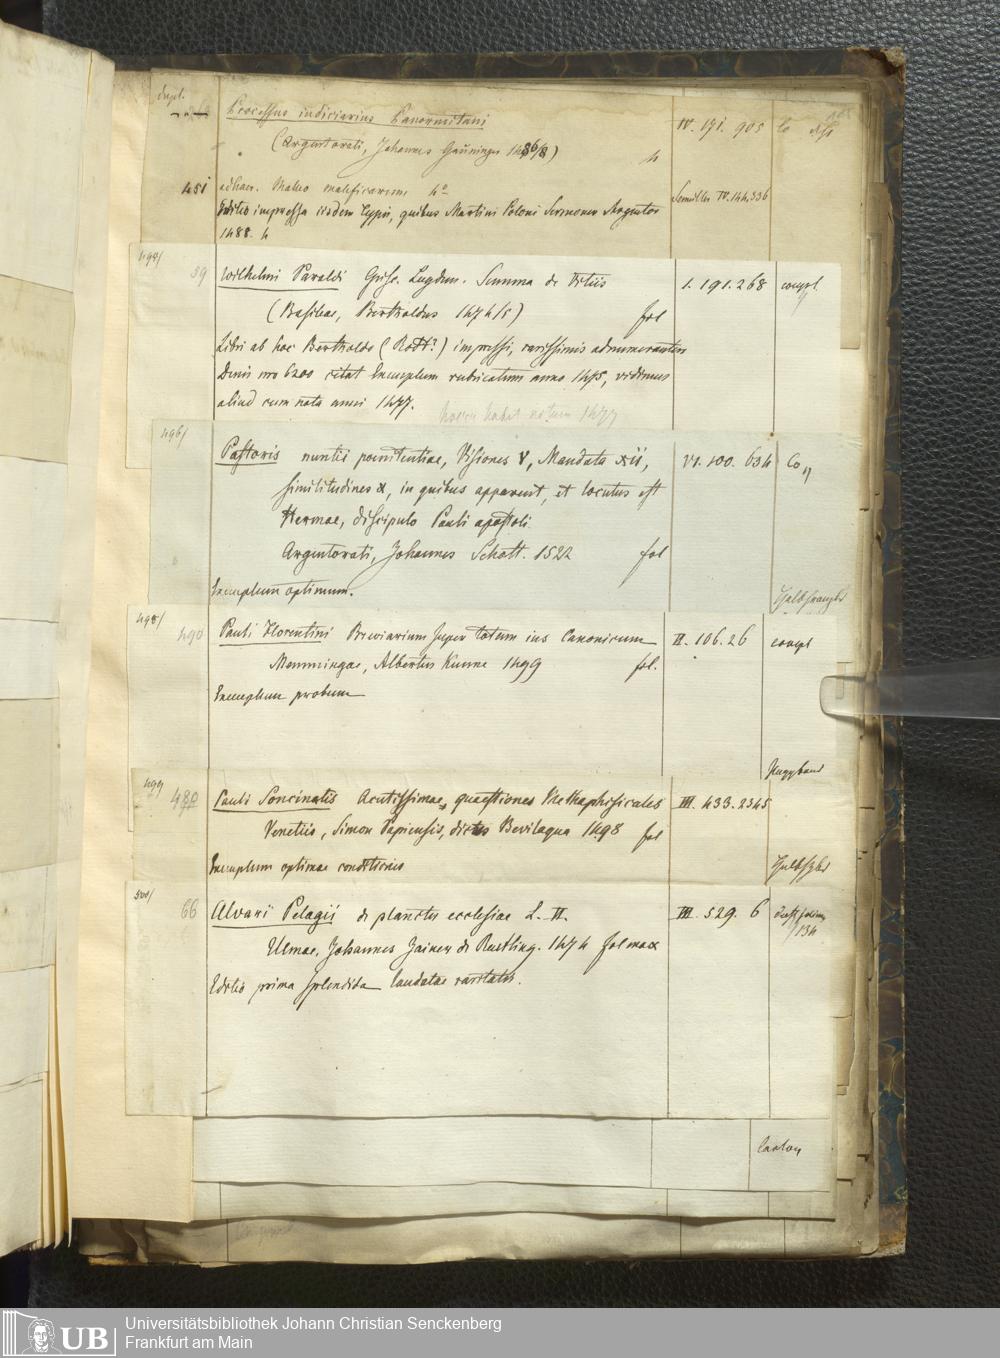 dupl.
Processus iudiciarius Panormitani IV. 171. 905 Co
(Argentorati, Johannes Grüninger 1486/8) 4
451 adhaer. Malleo maleficarum 4º Semiller IV. 144. 336
Editio impressa iisdem typis, quibus Martini Poloni Sermones Argentor
1488. 4
494/ 59 Wilhelmi Paraldi Episc. Lugdun. Summa de Vitiis I. 191. 268 compl
(Basileae, Bertholdus 1474/5) fol
Libri ab hoc Bertholdo (Rodt?) impressi, rarissimis adnumerantur
Denis nro 6200 citat Exemplum rubricatum anno 1475, vidimus
aliud cum nota anni 1477.
1477
496/ Pastoris nuntii poenitentiae, Visiones V, Mandata xii, VI. 100. 634 Co
similitudines x, in quibus apparuit, et locutus est
Hermae, discipulo Pauli apostoli
Argentorati, Johannes Schott. 1522 fol
Exemplum optimum. Halbfranzbd
498/ 490 Pauli Florentini Breviarium super totum ius Canonicum II. 106. 26 compl
Memmingae, Albertus Kunne 1499 fol.
Exemplum probum
Pappband
499 480 Pauli Soncinatis Acutissimae quaestiones Methaphisicales III. 433. 2345
Venetiis, Simon Papiensis, dictus Bevilaqua 1498 fol
Exemplum optimae conditionis Halbfzbd
500/ 66 Alvari Pelagii de planctu ecclesiae L. II. III. 529. 6
134
Ulmae, Johannes Zainer de Reutling. 1474 fol max
Editio prima splendida laudatae raritatis.
Carton
UB
Universitätsbibliothek Johann Christian Senckenberg
Frankfurt am Main